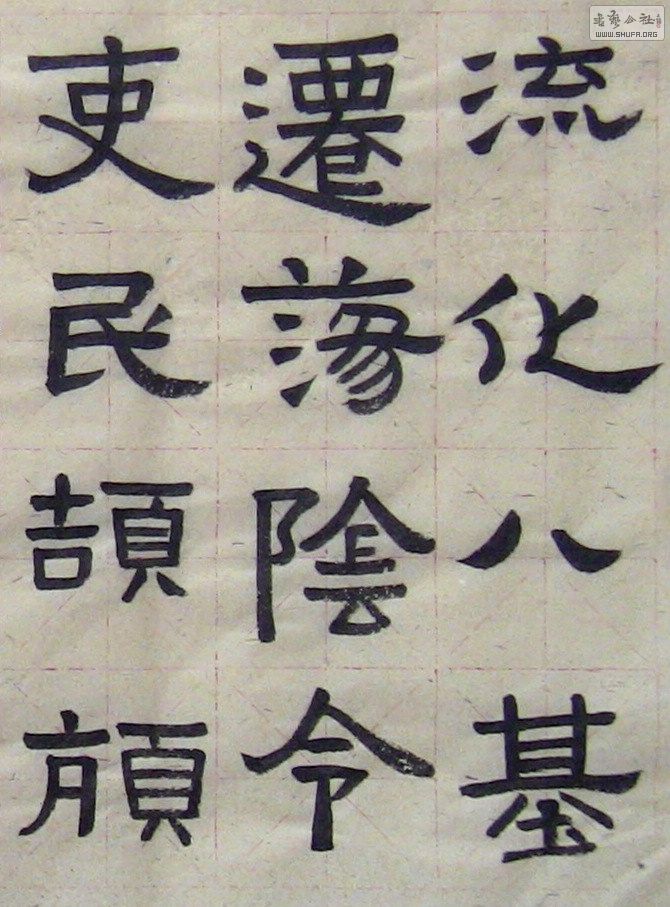 流化八基
遷蕩陰令
吏民頡頏
書藝公社
WWW.SHUFA.ORG